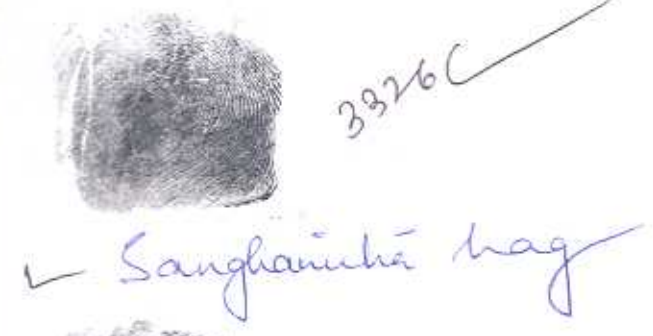 3326
Sanghamitra nag